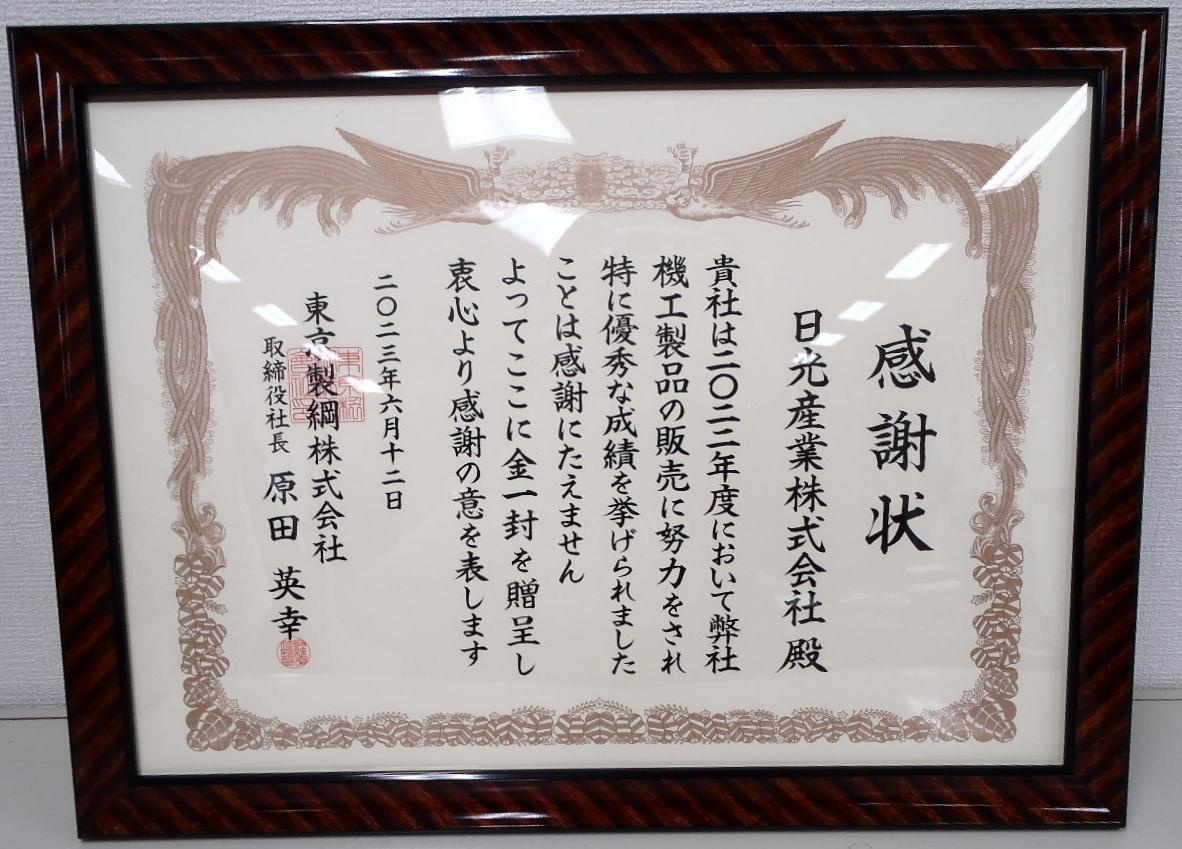 感謝状
日光産業株式会社 殿
貴社は二〇二二年度において弊社
機工製品の販売に努力をされ
特に優秀な成績を挙げられました
ことは感謝にたえません
よってここに金一封を贈呈し
衷心より感謝の意を表します
二〇二三年六月十二日
東京製綱株式会社
取締役社長 原田 英幸